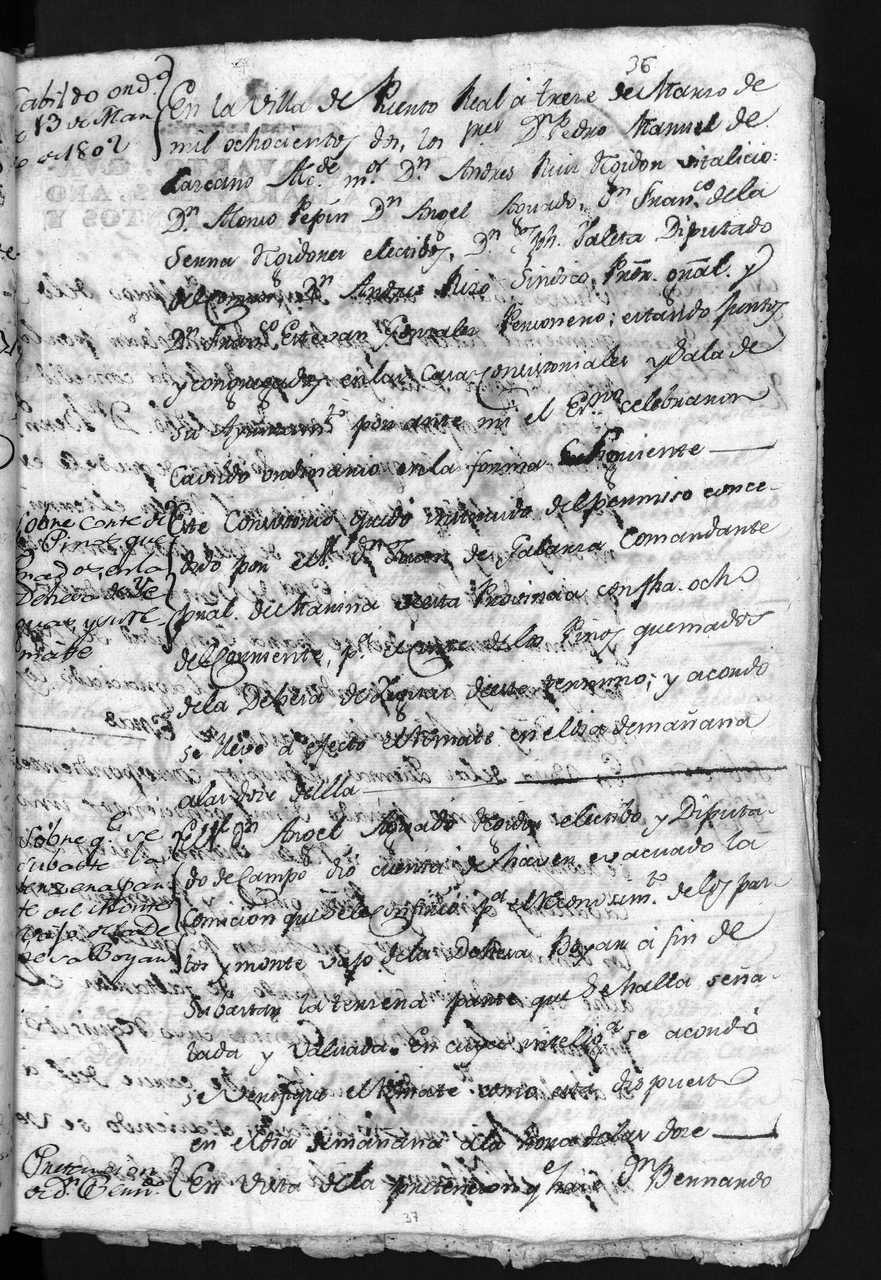 36
Cabildo ord.º
de 13 de Mar
zo de 1802
En la Villa de Puerto Real á trese de Marzo de
mil ochocientos dos, los sres Dn. Pedro Manuel de
Lazcano Alc.de m.or Dn. Andres Ruiz Regidor vitalicio:
Dn. Alonso Pepin Dn. Angel Aguado, Dn. Fran.co de la
Serna Regidores electibos, Dn. Jph. Zaleta Diputado
del Comun Dn. Andres Rizo Sindico Pror. gral. y
Dn. Fran.co Estevan Gonzales Personero; estando juntos
y congregados en las Casas Consistoriales y Sala de
su Ayuntam.to por ante mi el Es.no celebraron
Cavildo ordinario en la forma Siguiente
Sobre Corte de
Pinos que
mados en la
Dehesa de Ye
guas y su Re
mate
Este Consistorio quedó enterado del permiso conce-
dido por el Sr. Dn. Juan de Galarza Comandante
pral. de Marina de esta Provincia con fha. ocho
del Corriente, p.a el corte de los Pinos quemados
de la Dehesa de Yeguas de este termino; y acordo
se lleve á efecto el Remate en el dia de mañana
a las doze de ella
Sobre q.e se
subaste la
terzena par
te del Monte
vajo de la De
hesa Boyar
El Sr. Dn. Angel Aguado Regidor electibo y Diputa-
do de Campo dió cuenta de haver evacuado la
Comicion que se le confirió p.a el Reconosim.to de los par-
tos y monte vajo de la Dehesa Boyar á fin de
Subastar la tersena parte que se halla seña-
lada y valuada. En cuya intelig.a se acordó
se Verifique el Remate como esta dispuesto
en el dia de mañana a la hora de las doze
Pretencion
de Dn. Bern.do
En vista de la pretencion q.e hase Dn. Bernardo
37